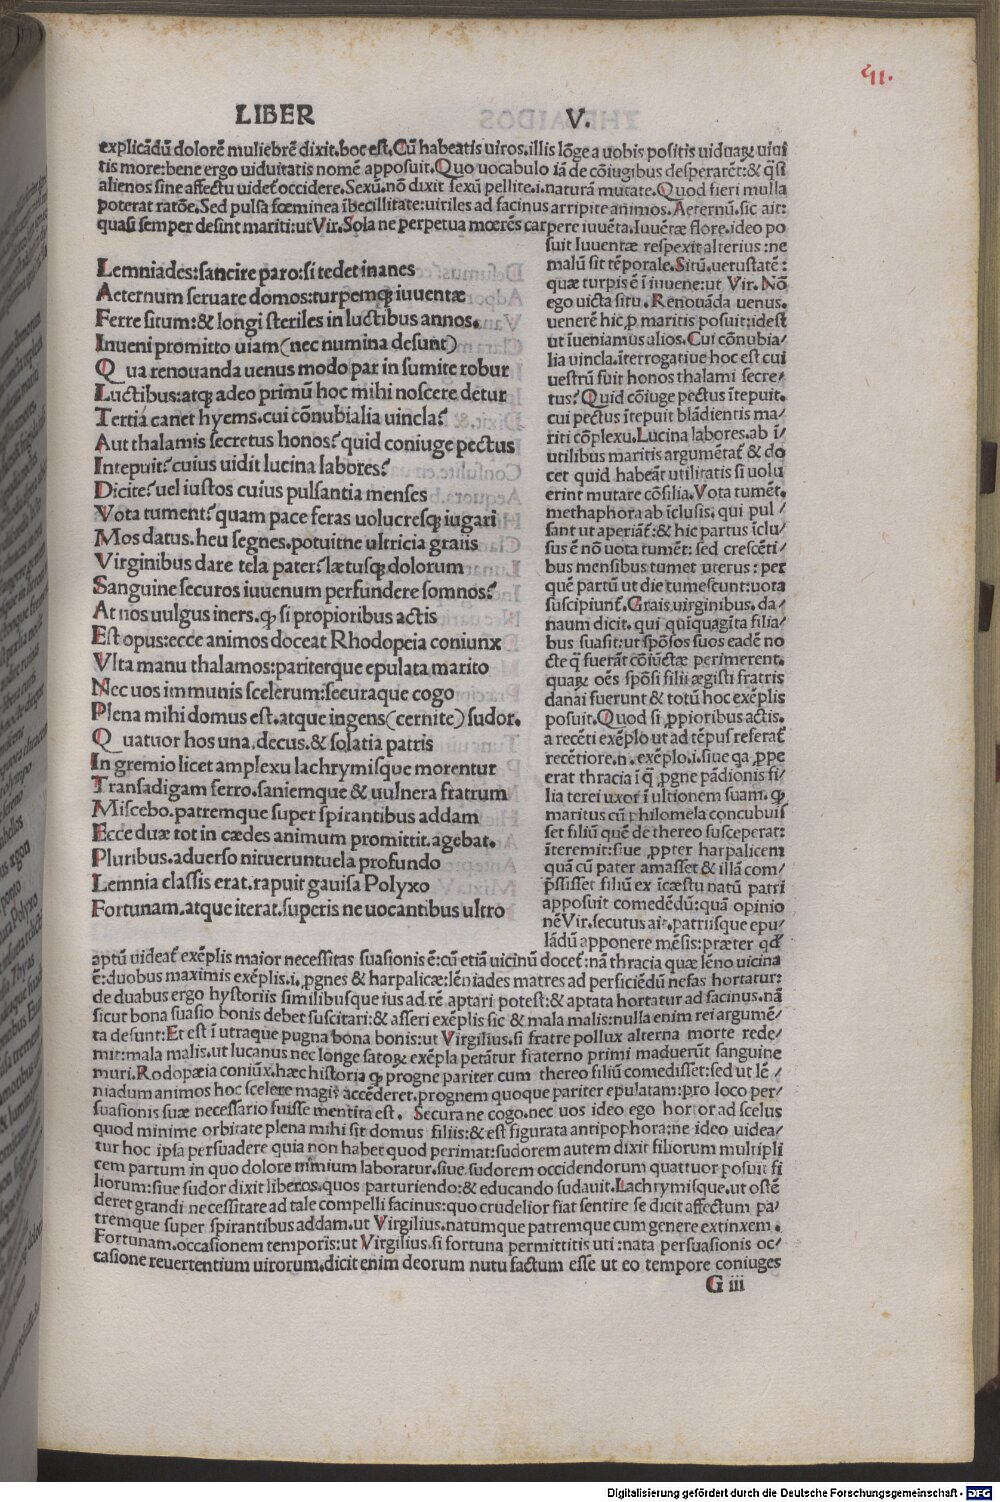 LIBER V.
explicādū dolorē muliebrē dixit.hoc est.Cū habeatis uiros.illis lōge a uobis positis uiduaꝝ uiui
tis more:bene ergo uiduitatis nomē apposuit.Quo uocabulo iā de cōiugibus desperarēt:& q̄si
alienos sine affectu uideŧ occidere.Sexū.nō dixit sexū pellite.i.naturā mutate.Quod fieri nulla
poterat ratōe.Sed pulsa fœminea ībecillitate:uiriles ad facinus arripite animos.Aeternū.sic ait:
quasi semper desint mariti:ut Vir.Sola ne perpetua mœrēs carpere iuuēta.Iuuētæ flore.ideo po
Lemniades:sancire paro:si tedet inanes
Aeternum seruare domos:turpemqꝫ iuuentæ
Ferre situm:& longi steriles in luctibus annos.
Inueni promitto uiam(nec numina desunt)
Qua renouanda uenus modo par in sumite robur
Luctibus:atqꝫ adeo primū hoc mihi noscere detur
Tertia canet hyems.cui cōnubialia uincla?
Aut thalamis secretus honos?quid coniuge pectus
Intepuit?cuius uidit lucina labores?
Dicite?uel iustos cuius pulsantia menses
Vota tument?quam pace feras uolucresqꝫ iugari
Mos datus.heu segnes.potuitne ultricia graiis
Virginibus dare tela pater?lætusqꝫ dolorum
Sanguine securos iuuenum perfundere somnos?
At nos uulgus iners.qꝫ si propioribus actis
Est opus:ecce animos doceat Rhodopeia coniunx
Vlta manu thalamos:pariterque epulata marito
Nec uos immunis scelerum:securaque cogo
Plena mihi domus est.atque ingens(cernite)sudor.
Quatuor hos una.decus.& solatia patris
In gremio licet amplexu lachrymisque morentur
Transadigam ferro.saniemque & uulnera fratrum
Miscebo.patremque super spirantibus addam
Ecce duæ tot in cædes animum promittit.agebat.
Pluribus.aduerso nituerunt uela profundo
Lemnia classis erat.rapuit gauisa Polyxo
Fortunam.atque iterat.superis ne uocantibus ultro
suit Iuuentæ respexit alterius:ne
malū sit tēporale.Sitū.uetustatē:
quæ turpis ē ī iuuene:ut Vir.Nō
ego uicta situ.Renouāda uenus.
uenerē hic.p maritis posuit:idest
ut īueniamus alios.Cui cōnubia/
lia uincla.īterrogatiue hoc est cui
uestrū fuit honos thalami secre/
tus?Quid cōiuge pectus ītepuit.
cui pectus ītepuit blādientis ma/
riti cōplexu.Lucina labores.ab ī/
utilibus maritis argumētaŧ & do
cet quid habeāt utilitatis si uolu
erint mutare cōsilia.Vota tumēt.
methaphora ab īclusis.qui pul/
sant ut aperiāŧ:& hic partus īclu/
sus ē nō uota tumēt: sed crescēti/
bus mensibus tumet uterus:per
quē partū ut die tumescunt:uota
suscipiunŧ.Grais uirginibus.da/
naum dicit.qui quīquagīta filia/
bus suasit:ut spōsos suos eadē no
cte q̄ fuerāt cōiūctæ perimerent.
quaꝝ oēs spōsi filii ægisti fratris
danai fuerunt & totū hoc exēplis
posuit.Quod si ꝓpioribus actis.
a recēti exēplo ut ad tēpus referaŧ
recētiore.n.exēplo.i.siue qa ꝓpe
erat thracia ī q̄ ꝓgne pādionis fi/
lia terei uxor ī ultionem suam.qꝫ
maritus cū philomela concubuis
set filiū quē de thereo susceperat:
īteremit:siue ꝓpter harpalicem
quā cū pater amasset & illā com/
p̄ssisset filiū ex īcæstu natū patri
apposuit comedēdū:quā opinio
nē Vir.secutus ait.patriisque epu/
lādū apponere mēsis:præter qd
aptū uideaŧ exēplis maior necessitas suasionis ē:cū etiā uicinū doceŧ:nā thracia quæ lēno uicina
ē:duobus maximis exēplis.i.ꝓgnes & harpalicæ:lēniades matres ad perficiēdū nefas hortatur:
de duabus ergo hystoriis similibusque ius ad rē aptari potest:& aptata hortatur ad facinus.nā
sicut bona suasio bonis debet suscitari:& asseri exēplis sic & mala malis:nulla enim rei argumē/
ta desunt:Et est ī utraque pugna bona bonis:ut Virgilius.si fratre pollux alterna morte rede/
mit:mala malis.ut lucanus nec longe satoꝝ exēpla petātur fraterno primi maduerūt sanguine
muri.Rodopæia coniux.hæc historia qꝫ progne pariter cum thereo filiū comedisset:sed ut lē/
niadum animos hoc scelere magis accēderet.prognem quoque pariter epulatam:pro loco per/
suasionis suæ necessario fuisse mentita est. Secura ne cogo.nec uos ideo ego hortor ad scelus
quod minime orbitate plena mihi sit domus filiis:& est figurata antipophora:ne ideo uidea/
tur hoc ipsa persuadere quia non habet quod perimat:sudorem autem dixit filiorum multipli
cem partum in quo dolore nimium laboratur.siue sudorem occidendorum quattuor posuit fi
liorum:siue sudor dixit liberos.quos parturiendo:& educando sudauit.Lachrymisque.ut ostē
deret grandi necessitate ad tale compelli facinus:quo crudelior fiat sentire se dicit affectum pa/
tremque super spirantibus addam.ut Virgilius.natumque patremque cum genere extinxem.
Fortunam.occasionem temporis:ut Virgilius.si fortuna permittitis uti:nata persuasionis oc/
casione reuertentium uirorum.dicit enim deorum nutu factum esse ut eo tempore coniuges
G iii
Digitalisierung gefördert durch die Deutsche Forschungsgemeinschaft - DFG